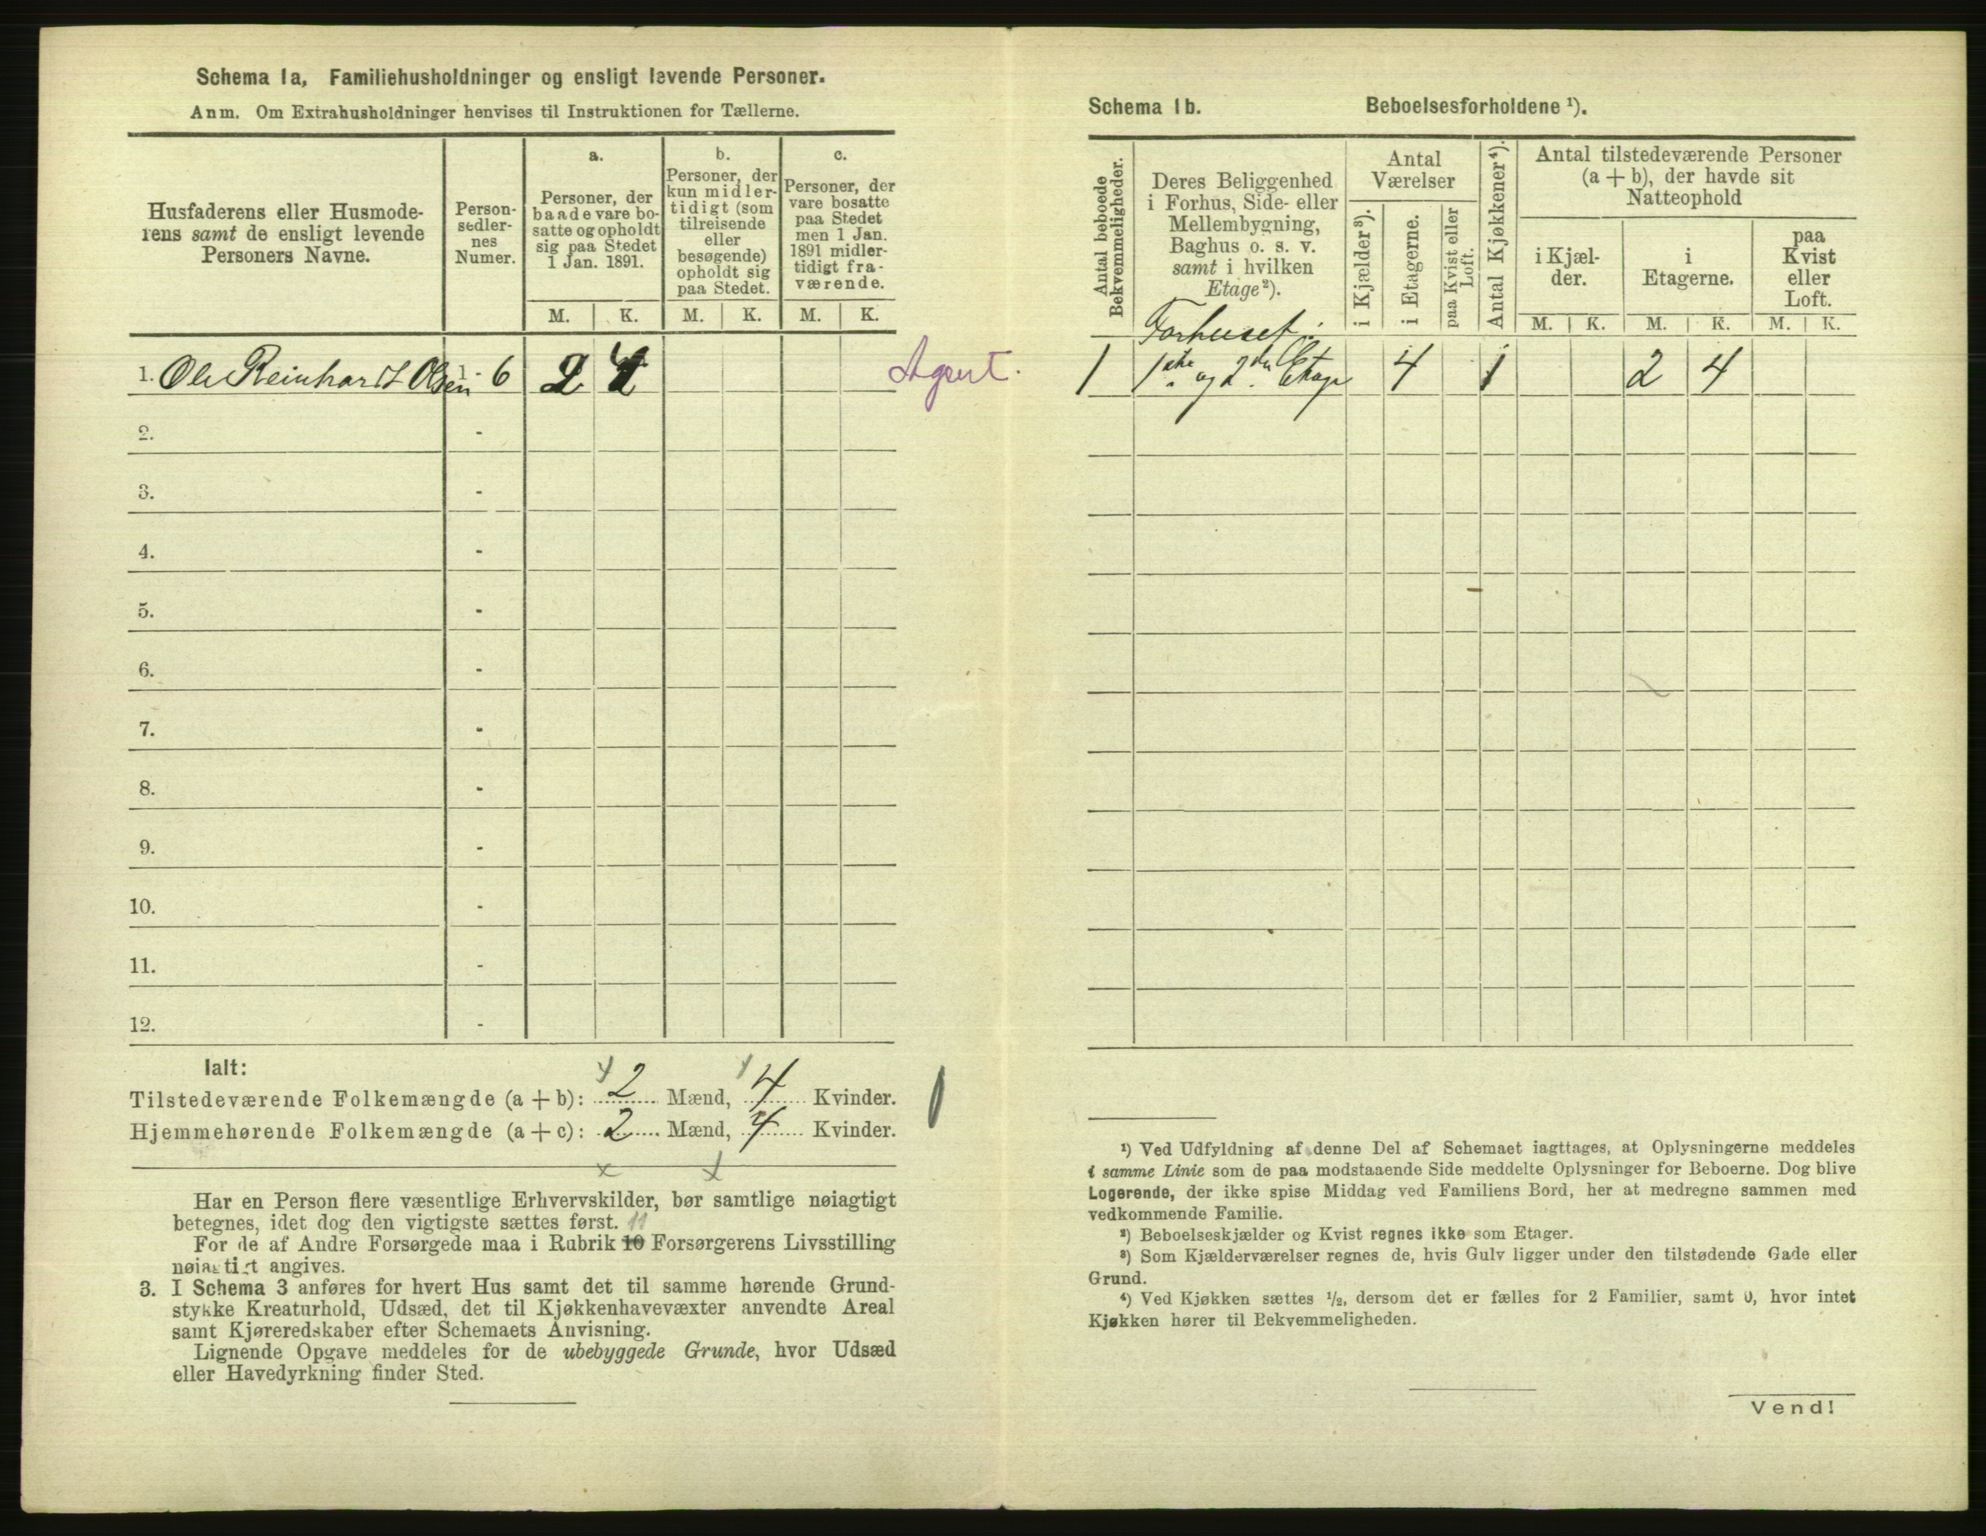 Schema 1a, Familiehusholdninger og ensligt levende Personer.
Anm. Om Extrahusholdninger henvises til Instruktionen for Tællerne.
Husfaderens eller Husmode-
rens samt de ensligt levende
Personers Navne.
Person-
sedler-
nes
Numer.
a.
Personer, der
baade vare bo-
satte og opholdt
sig paa Stedet
1 Jan. 1891.
b.
Personer, der
kun midler-
tidigt (som
tilreisende
eller
besøgende)
opholdt sig
paa Stedet.
c.
Personer, der
vare bosatte
paa Stedet
men 1 Jan.
1891 midler-
tidigt fra-
værende.
M. K. M. K. M. K.
1. Ole Reinhardt Olsen 1 - 6 2 4
2. -
3. -
4. -
5. -
6. -
7. -
8. -
9. -
10. -
11. -
12. -
Ialt:
Tilstedeværende Folkemængde (a + b): 2 Mænd, 4 Kvinder.
Hjemmehørende Folkemængde (a + c): 2 Mænd, 4 Kvinder.
x x
Har en Person flere væsentlige Erhvervskilder, bør samtlige nøiagtigt
betegnes, idet dog den vigtigste sættes først. 11
For de af Andre Forsørgede maa i Rubrik 10 Forsørgerens Livsstilling
nøiagtigt angives.
3. I Schema 3 anføres for hvert Hus samt det til samme hørende Grund-
stykke Kreaturhold, Udsæd, det til Kjøkkenhavevæxter anvendte Areal
samt Kjøreredskaber efter Schemaets Anvisning.
Lignende Opgave meddeles for de ubebyggede Grunde, hvor Udsæd
eller Havedyrkning finder Sted.
Schema 1b. Beboelsesforholdene ¹).
Antal beboede
Bekvemmeligheder.
Deres Beliggenhed
i Forhus, Side- eller
Mellembygning,
Baghus o. s. v.
samt i hvilken
Etage²).
Antal
Værelser
i Kjælder³).
i Etagerne.
paa Kvist eller
Loft.
Antal Kjøkkener⁴).
Antal tilstedeværende Personer
(a + b), der havde sit
Natteophold
i Kjæl-
der.
i
Etagerne.
paa
Kvist
eller
Loft.
M. K. M. K. M. K.
Forhuset:
1 1ste og 2den Etage 4 1 2 4
¹) Ved Udfyldning af denne Del af Schemaet iagttages, at Oplysningerne meddeles
i samme Linie som de paa modstaaende Side meddelte Oplysninger for Beboerne. Dog blive
Logerende, der ikke spise Middag ved Familiens Bord, her at medregne sammen med
vedkommende Familie.
²) Beboelseskjælder og Kvist regnes ikke som Etager.
³) Som Kjælderværelser regnes de, hvis Gulv ligger under den tilstødende Gade eller
Grund.
⁴) Ved Kjøkken sættes ½, dersom det er fælles for 2 Familier, samt 0, hvor intet
Kjøkken hører til Bekvemmeligheden.
Vend!